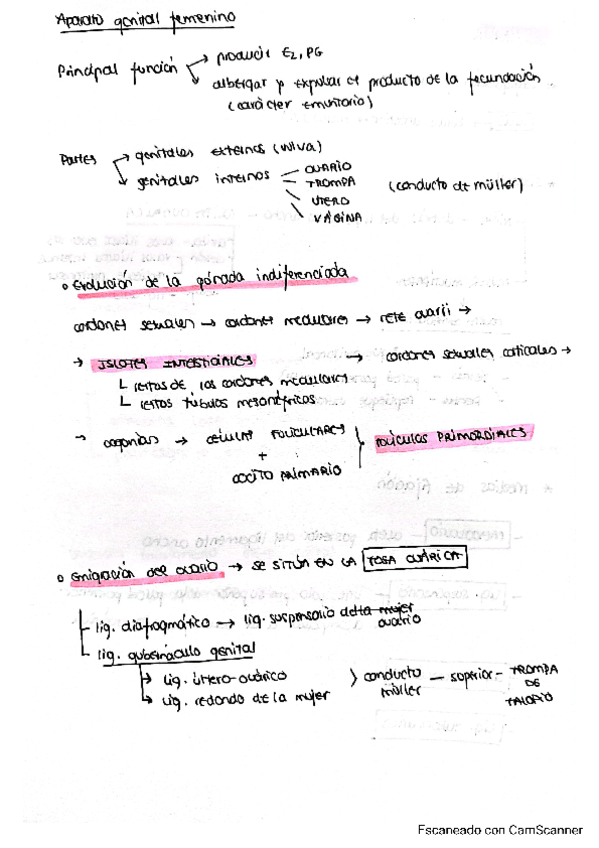 Aparato genital femenino
Principal función → producir E2, PG
↘ albergar y expulsar el producto de la fecundación
(carácter emuntorio)
Partes → genitales externos (vulva)
↘ genitales internos — OVARIO
— TROMPA (conducto de müller)
ÚTERO
VAGINA
• Evolución de la gónada indiferenciada
cordones sexuales → cordones medulares → rete ovarii →
→ ISLOTES INTERSTICIALES → cordones sexuales corticales →
restos de los cordones medulares
restos túbulos mesonéfricos
→ oogonias → CÉLULAS FOLICULARES
+ FOLÍCULOS PRIMORDIALES
OOCITO PRIMARIO
• Emigración del ovario → SE SITÚA EN LA FOSA OVÁRICA
lig. diafragmático → lig. suspensorio del ovario
lig. gubernáculo genital
→ lig. útero-ovárico
→ lig. redondo de la mujer } conducto müller — superior - TROMPA DE FALOPIO
Escaneado con CamScanner